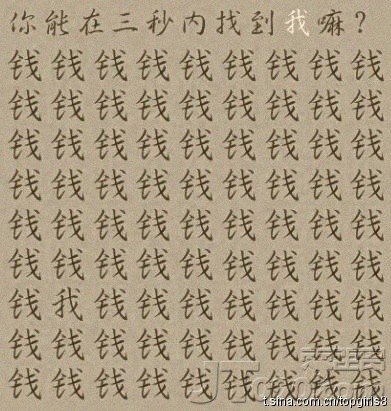 你能在三秒内找到我嘛？
钱钱钱钱钱钱钱钱钱
钱钱钱钱钱钱钱钱钱
钱钱钱钱钱钱钱钱钱
钱钱钱钱钱钱钱钱钱
钱钱钱钱钱钱钱钱钱
钱钱钱钱钱钱钱钱钱
钱我钱钱钱钱钱钱钱
钱钱钱钱钱钱钱钱钱
钱钱钱钱钱钱钱钱钱
t.sina.com.cn/topgirls8